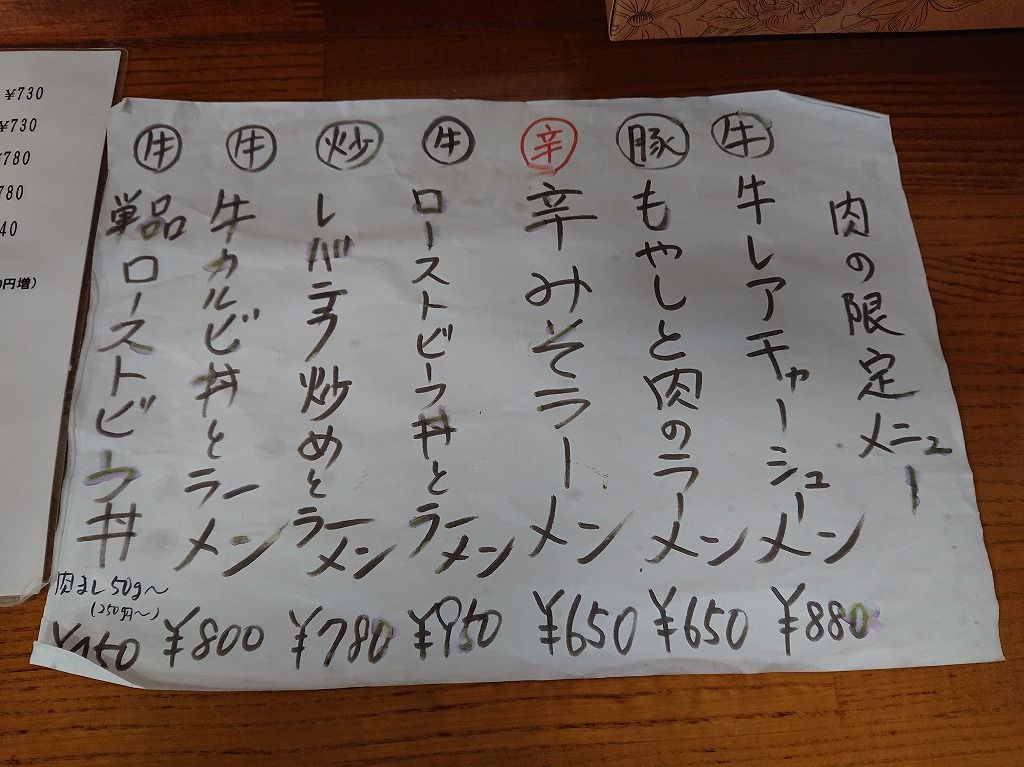 肉の限定メニュー
牛 牛レアチャーシューメン ¥880
豚 もやしと肉のラーメン ¥650
辛 辛みそラーメン ¥650
牛 ローストビーフ丼とラーメン ¥950
炒 レバニラ炒めとラーメン ¥780
牛 牛カルビ丼とラーメン ¥800
牛 単品ローストビーフ丼
肉まし50g～
(250円～)
¥730
¥730
¥780
780
40
円増)